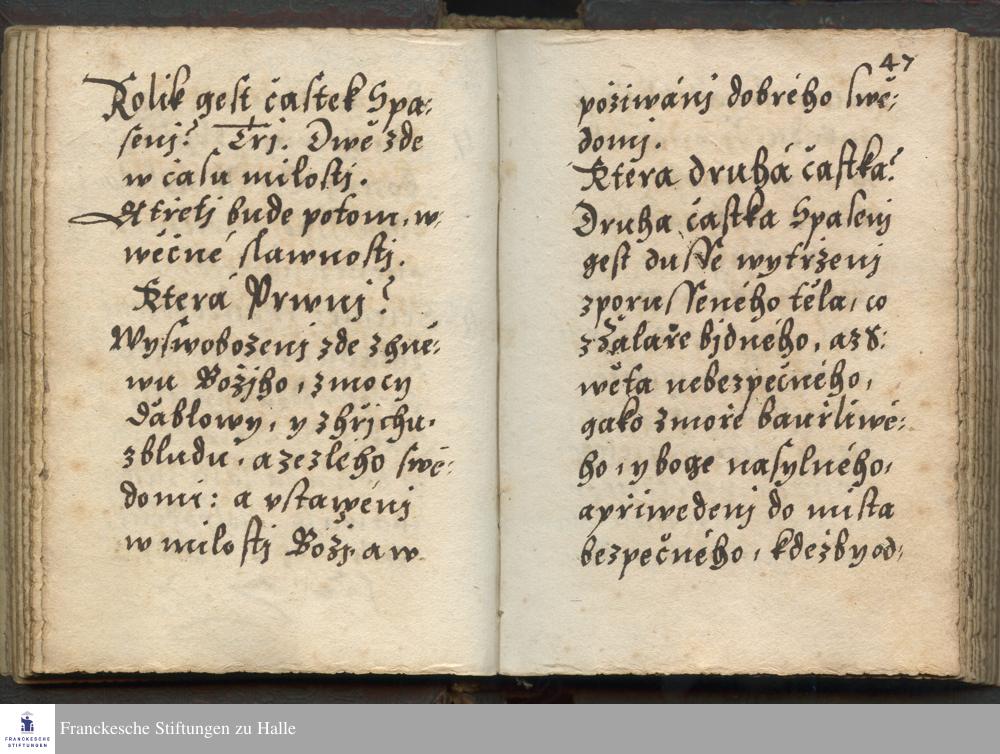 Kolik gest častek Spa:
senj? Trj. Dwě zde
w času milosti.
A třetj bude potom, w
wěčné slawnosti.
Která Prwnj?
Wyswobozenj zde z hně:
wu Božjho, z mocy
ďáblowy, y z hřjchu,
z bludu, a ze zlého swě:
domj: a vstawěnj
w milosti Božj a w
47
požiwánj dobrého swě:
domj.
Ktera druhá částka?
Druha častka Spasenj
gest dusse wytrženj
z porusseného těla, co
z žaláře bjdného, a z S:
wěta nebezpečného,
gako z moře bauřliwé:
ho, y boge nasylného,
a přiwedenj do mista
bezpečného, kdežby od:
Franckesche Stiftungen zu Halle
FRANCKESCHE
STIFTUNGEN